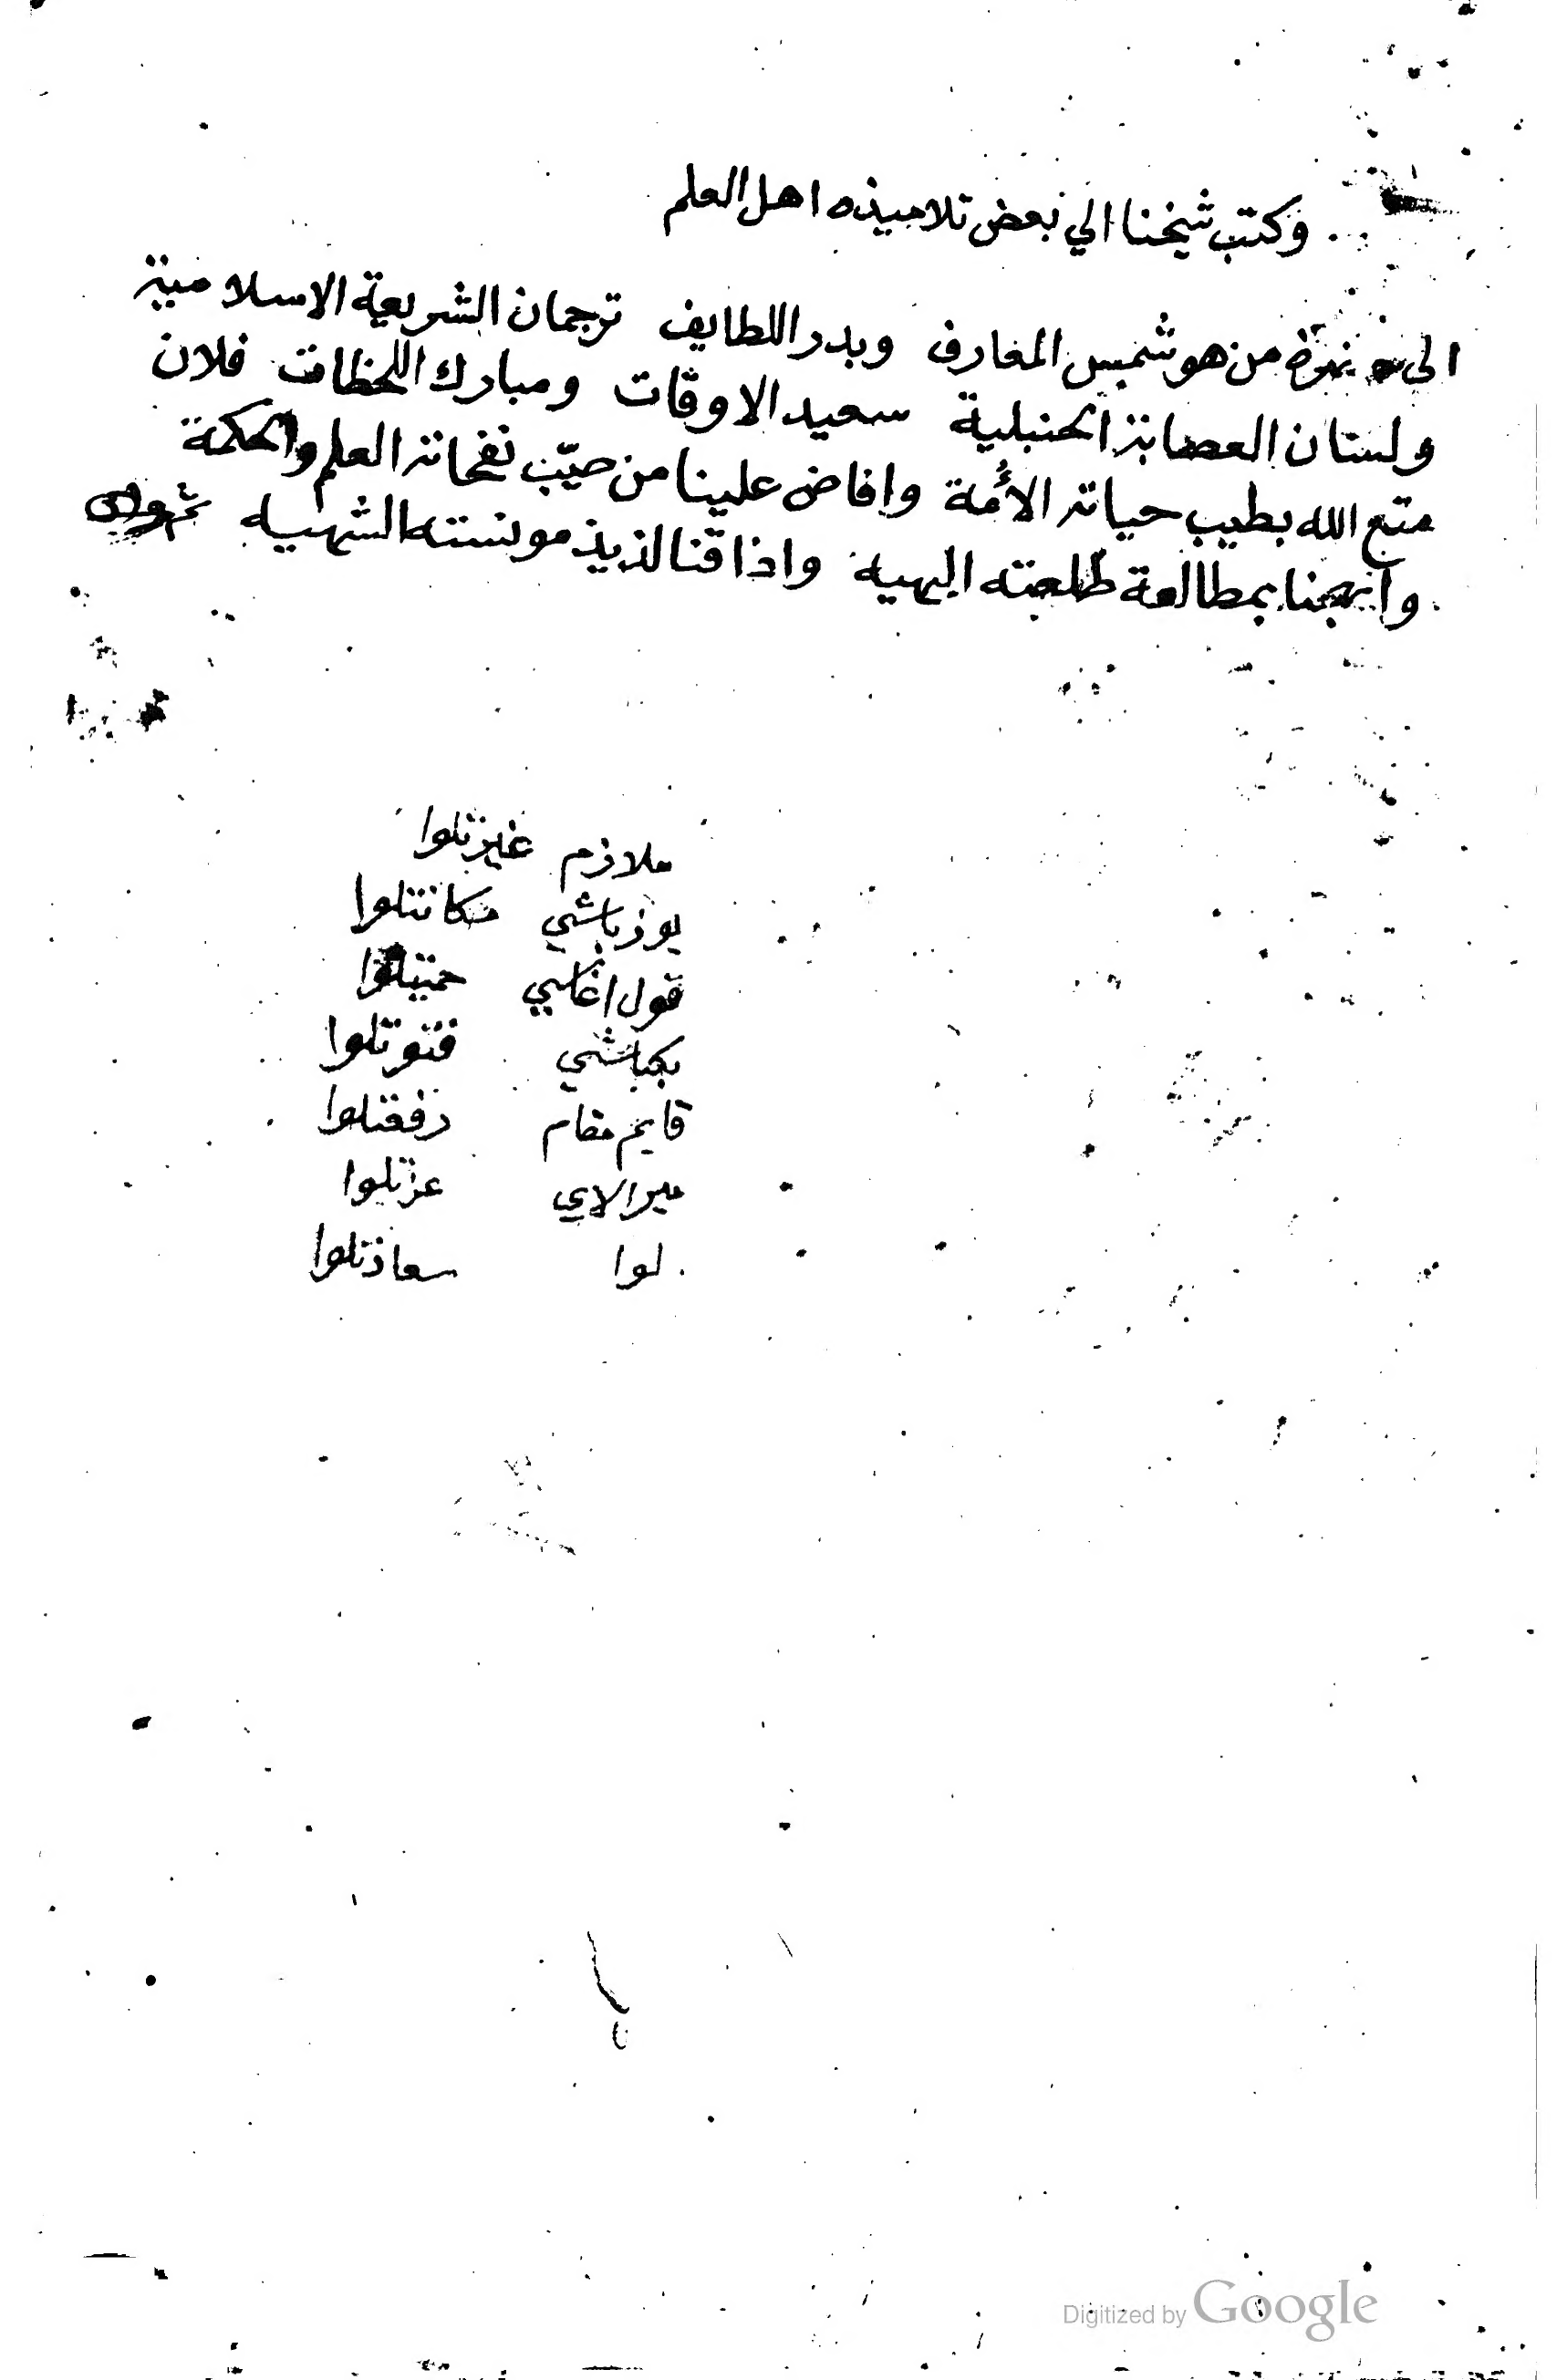 وكتب شيخنا الي بعض تلاميذه اهل العلم
الى من هو شمس المعارف وبدر اللطايف ترجمان الشريعة الاسلامية
ولسان العصابة الحنبلية سعيد الاوقات ومبارك اللحظات فلان
متع الله بطيب حياته الأُمة وافاض علينا من صيّب نفحاته العلم والحكمة
وابهجنا بمطالعة طلعته البهيه واذاقنا لذيذ مونسته الشهيه
ملازم غيرتلوا
يوزباشي مكانتلوا
قول اغاسي حميتلوا
بكباشي فتوتلوا
قايم مقام رفعتلوا
ميرالاي عزتلوا
لوا سعادتلوا
Digitized by Google